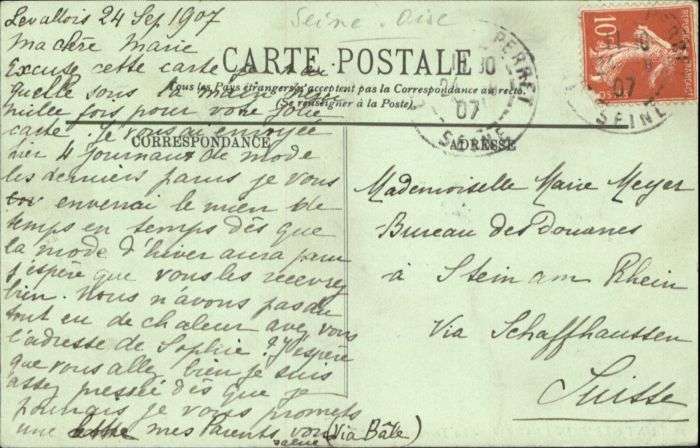 Levallois 24 Sep 1907
Seine - Oise
Ma chère Marie
CARTE POSTALE
Excuse cette carte
Tous les Pays étrangers n'acceptent pas la Correspondance au recto.
(Se renseigner à la Poste).
quelle sous la main
mille fois pour votre jolie
carte. Je vous ai envoyée
CORRESPONDANCE
hier 4 journaux de mode
les derniers parus je vous
enverrai le mien de
temps en temps dès que
la mode d'hiver aura paru
j'espère que vous les recevrez
bien. Nous n'avons pas du
tout eu de chaleur avez vous
l'adresse de Sophie? J'espère
que vous allez bien je suis
assez pressée dès que je
pourrais je vous promets
une mes Parents vous
saluent
ADRESSE
Mademoiselle Marie Meyer
Bureau des Douanes
à Stein am Rhein
Via Schaffhaussen
Suisse
(Via Bâle)
10
PERRET
07
SEINE
07
SEINE